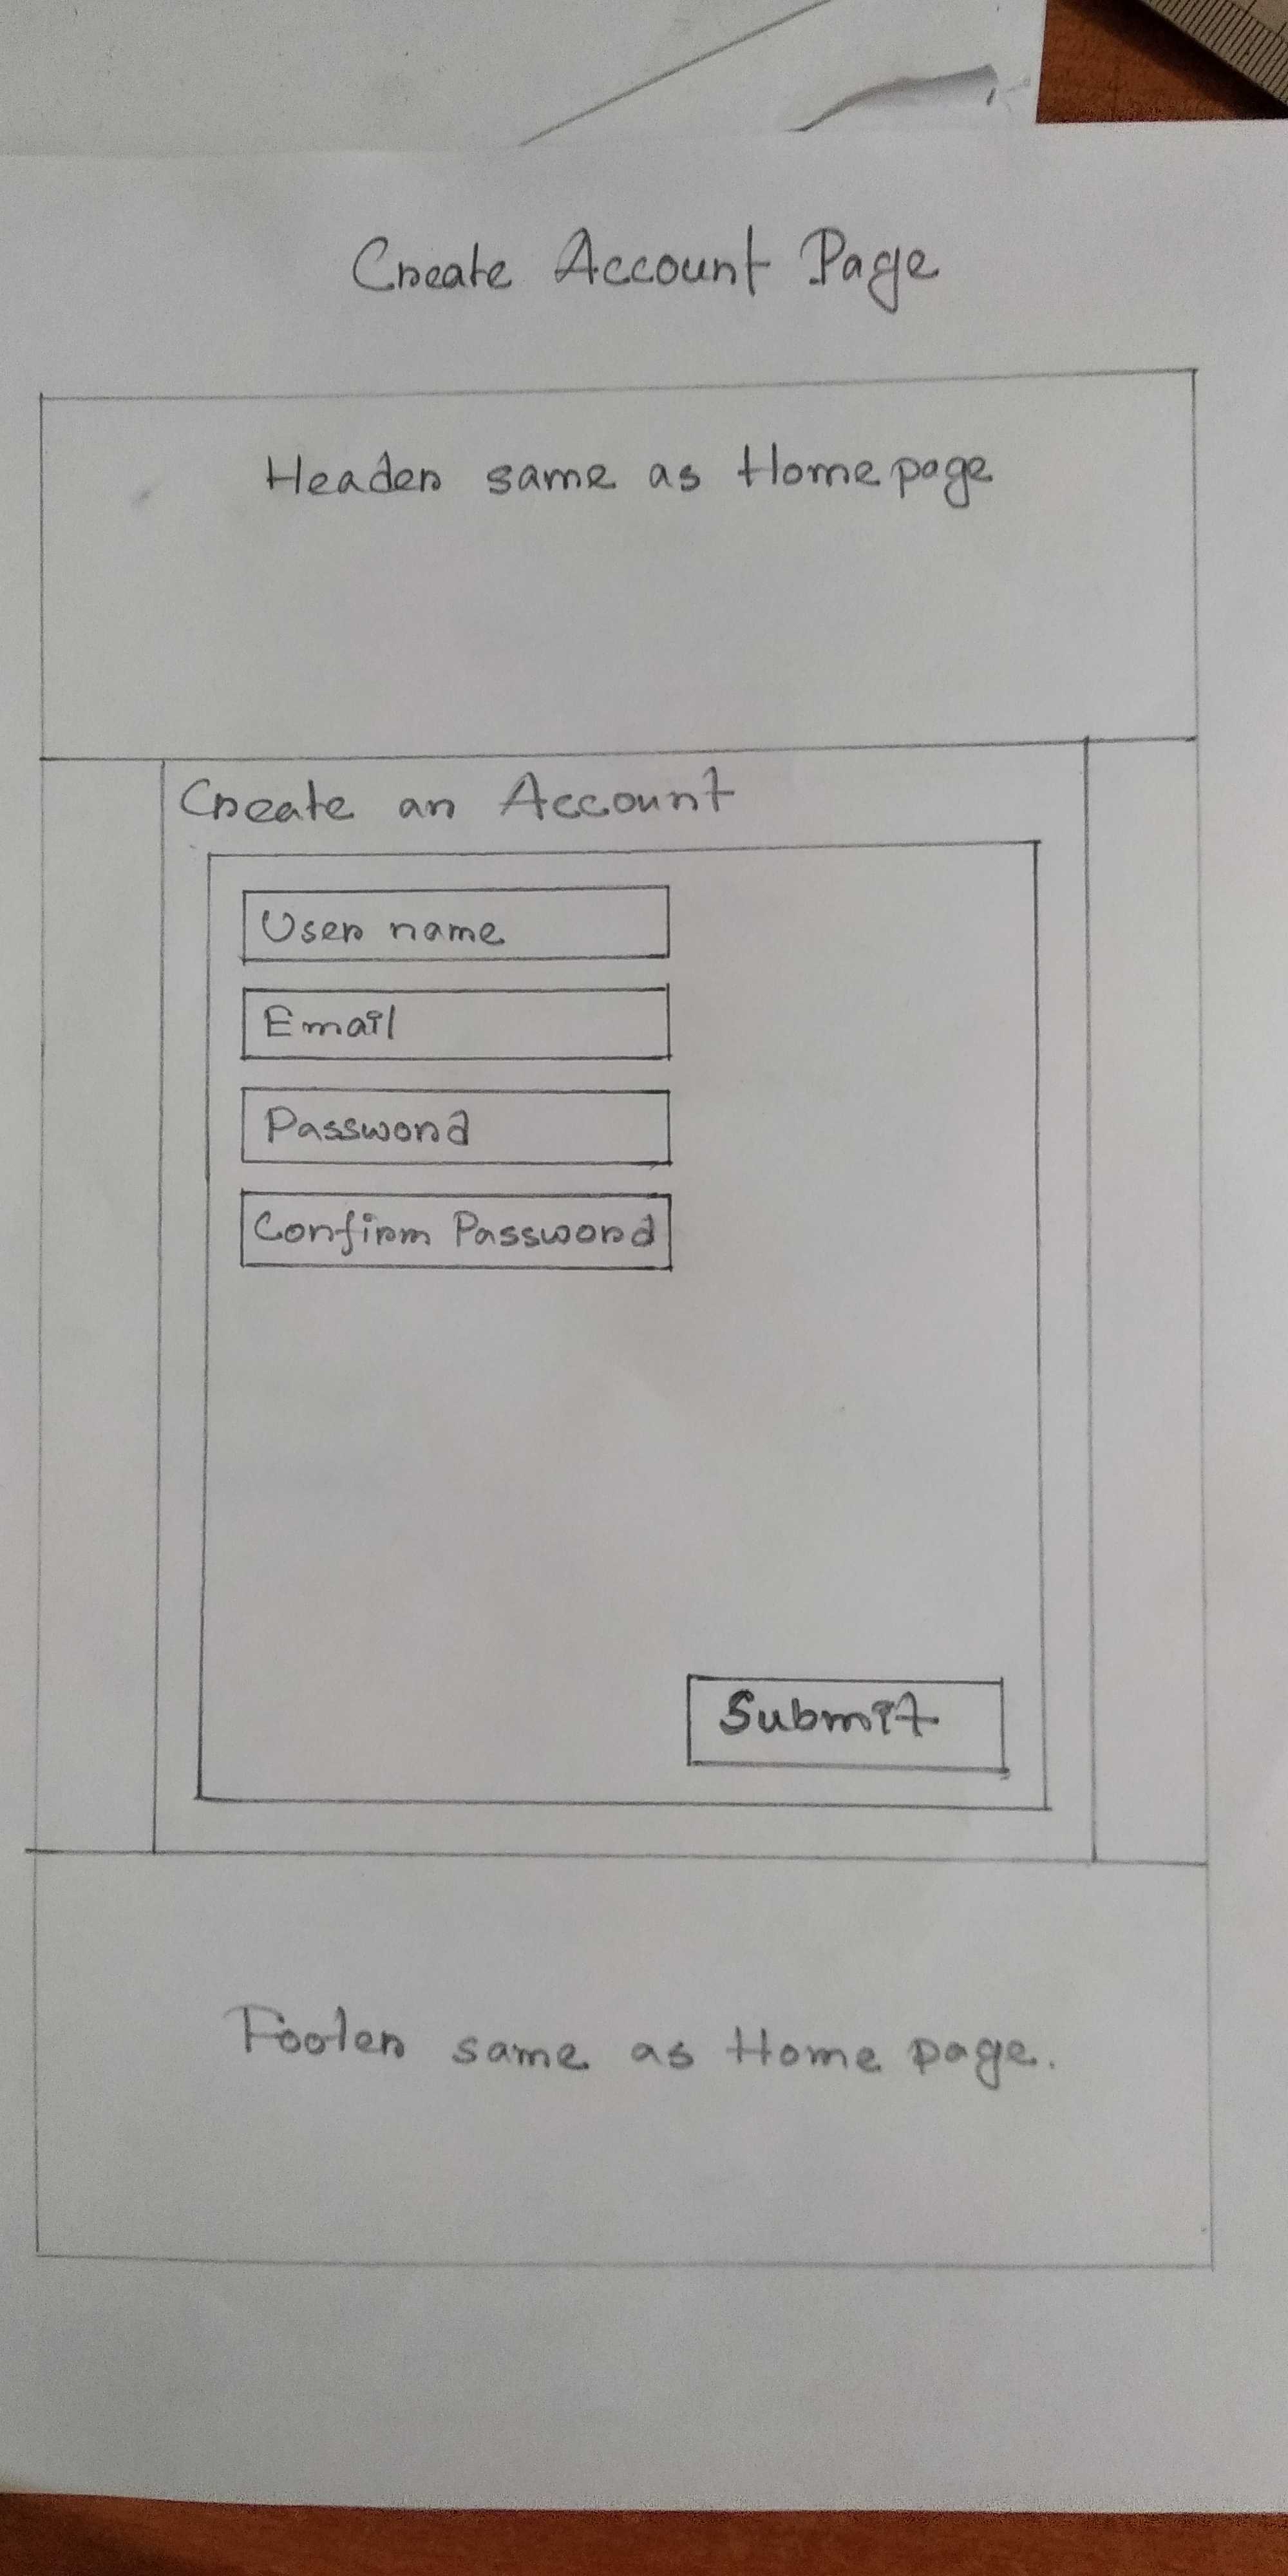 Create Account Page
Header same as Home page
Create an Account
User name
Email
Password
Confirm Password
Submit
Footer same as Home page.